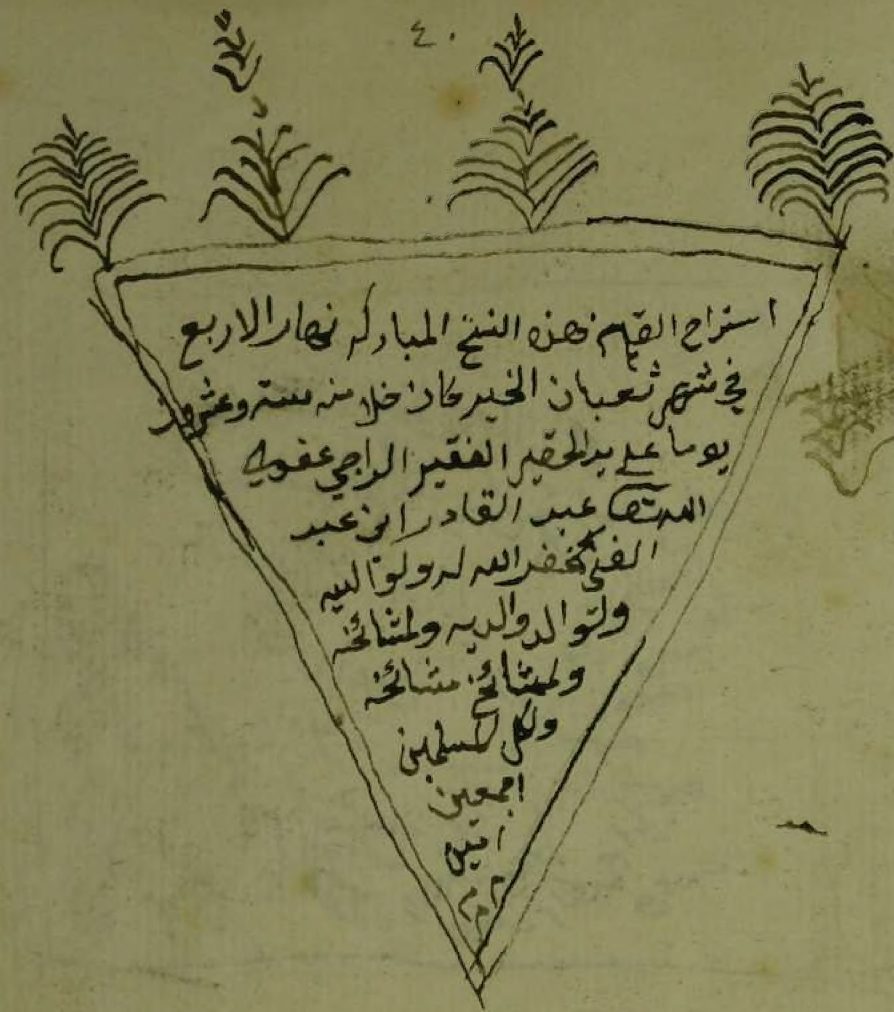 ٤٠
استراح القلم من هذه النسخ المباركه نهار الاربع
في شهر شعبان الخير كان خلا منه سته وعشرون
يوما على يد الحقير الفقير الراجي عفو
الله تعا عبد القادر ابن عبد
الغني غفر الله له ولوالديه
ولوالد والديه ولمشائخه
ولمشائخ مشائخه
ولكل المسلمين
اجمعين
امين